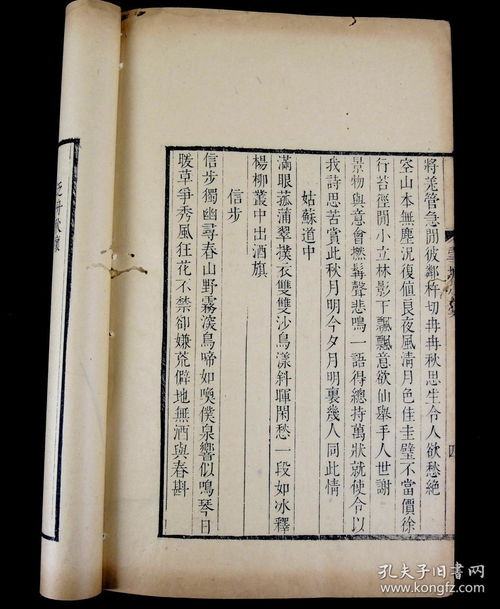 將羌管急閒彼鄰杵切冉冉秋思生令人欲愁絶
空山本無塵況復値良夜風清月色佳圭璧不當價徐
行苔徑閒小立林影下飄飄意欲仙舉手人世謝
景物與意會撫髯聲悲鳴一語得總持萬狀就使令以
我詩思苦賞此秋月明今夕月明裏幾人同此情
姑蘇道中
滿眼菰蒲翠撲衣雙雙沙鳥漾斜暉閑愁一段如冰釋
楊柳叢中出酒旗
信步
信步獨幽尋春山野霧深鳥啼如喚僕泉響似鳴琴日
暖草爭秀風狂花不禁卻嫌荒僻地無酒與春斟
四
孔夫子旧書网
www.kongfz.com